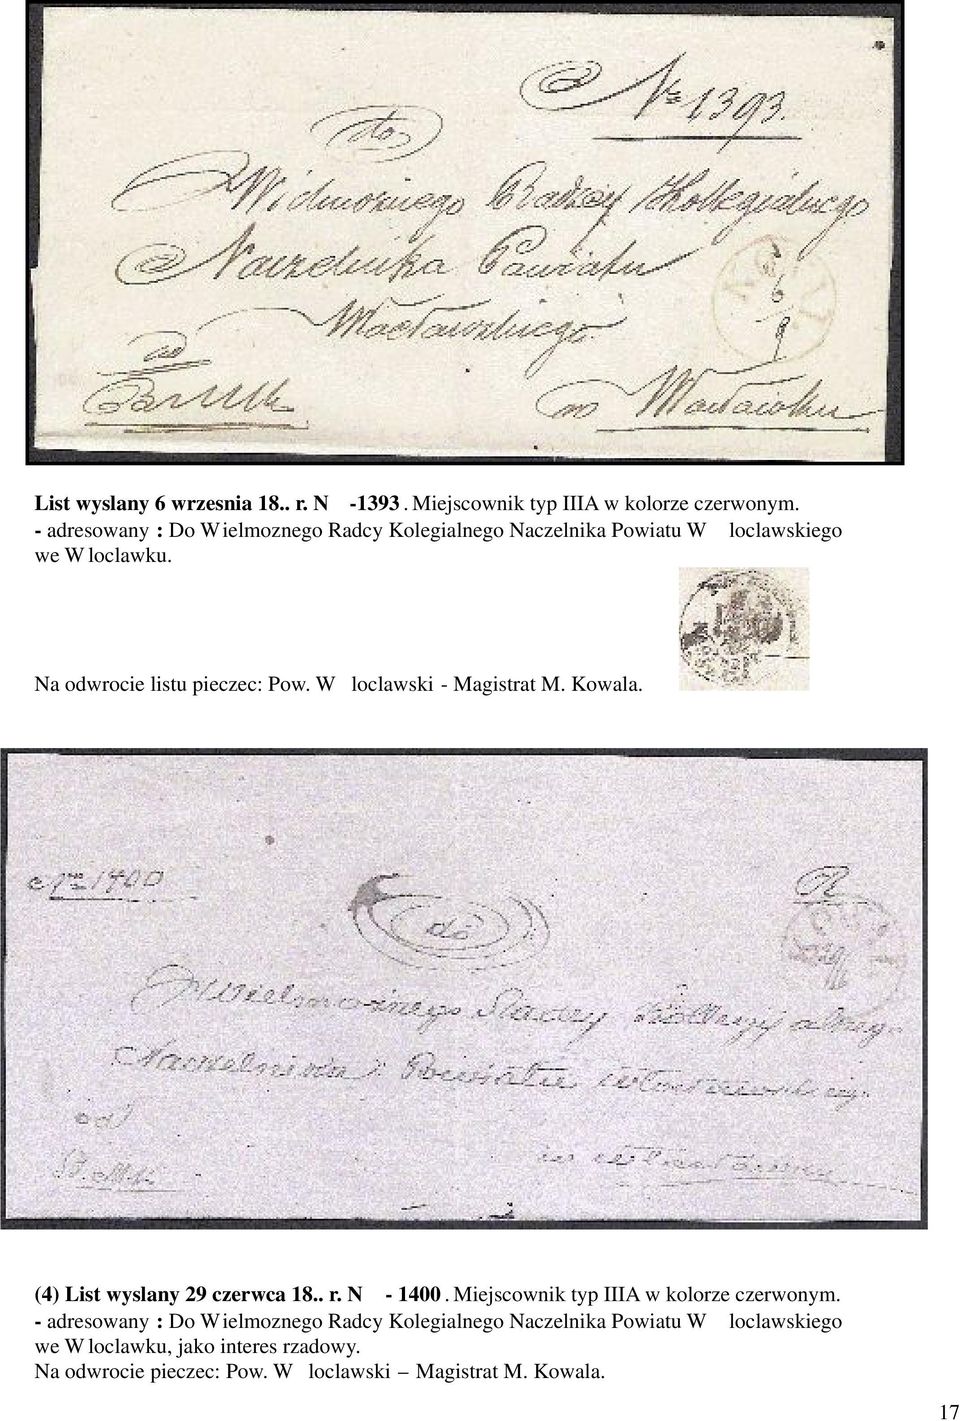 № 1393.
do
Wielmożnego Radzcy Kollegialnego
Naczelnika Powiatu
Wacławskiego
od
w Wacławku
List wyslany 6 wrzesnia 18.. r. N -1393 . Miejscownik typ IIIA w kolorze czerwonym.
- adresowany : Do Wielmoznego Radcy Kolegialnego Naczelnika Powiatu W loclawskiego
we W loclawku.
Na odwrocie listu pieczec: Pow. W loclawski - Magistrat M. Kowala.
№ 1400
do
Wielmożnego Radzcy Kollegialnego
Naczelnika Powiatu
od
w
(4) List wyslany 29 czerwca 18.. r. N - 1400 . Miejscownik typ IIIA w kolorze czerwonym.
- adresowany : Do Wielmoznego Radcy Kolegialnego Naczelnika Powiatu W loclawskiego
we W loclawku, jako interes rzadowy.
Na odwrocie pieczec: Pow. W loclawski – Magistrat M. Kowala.
17